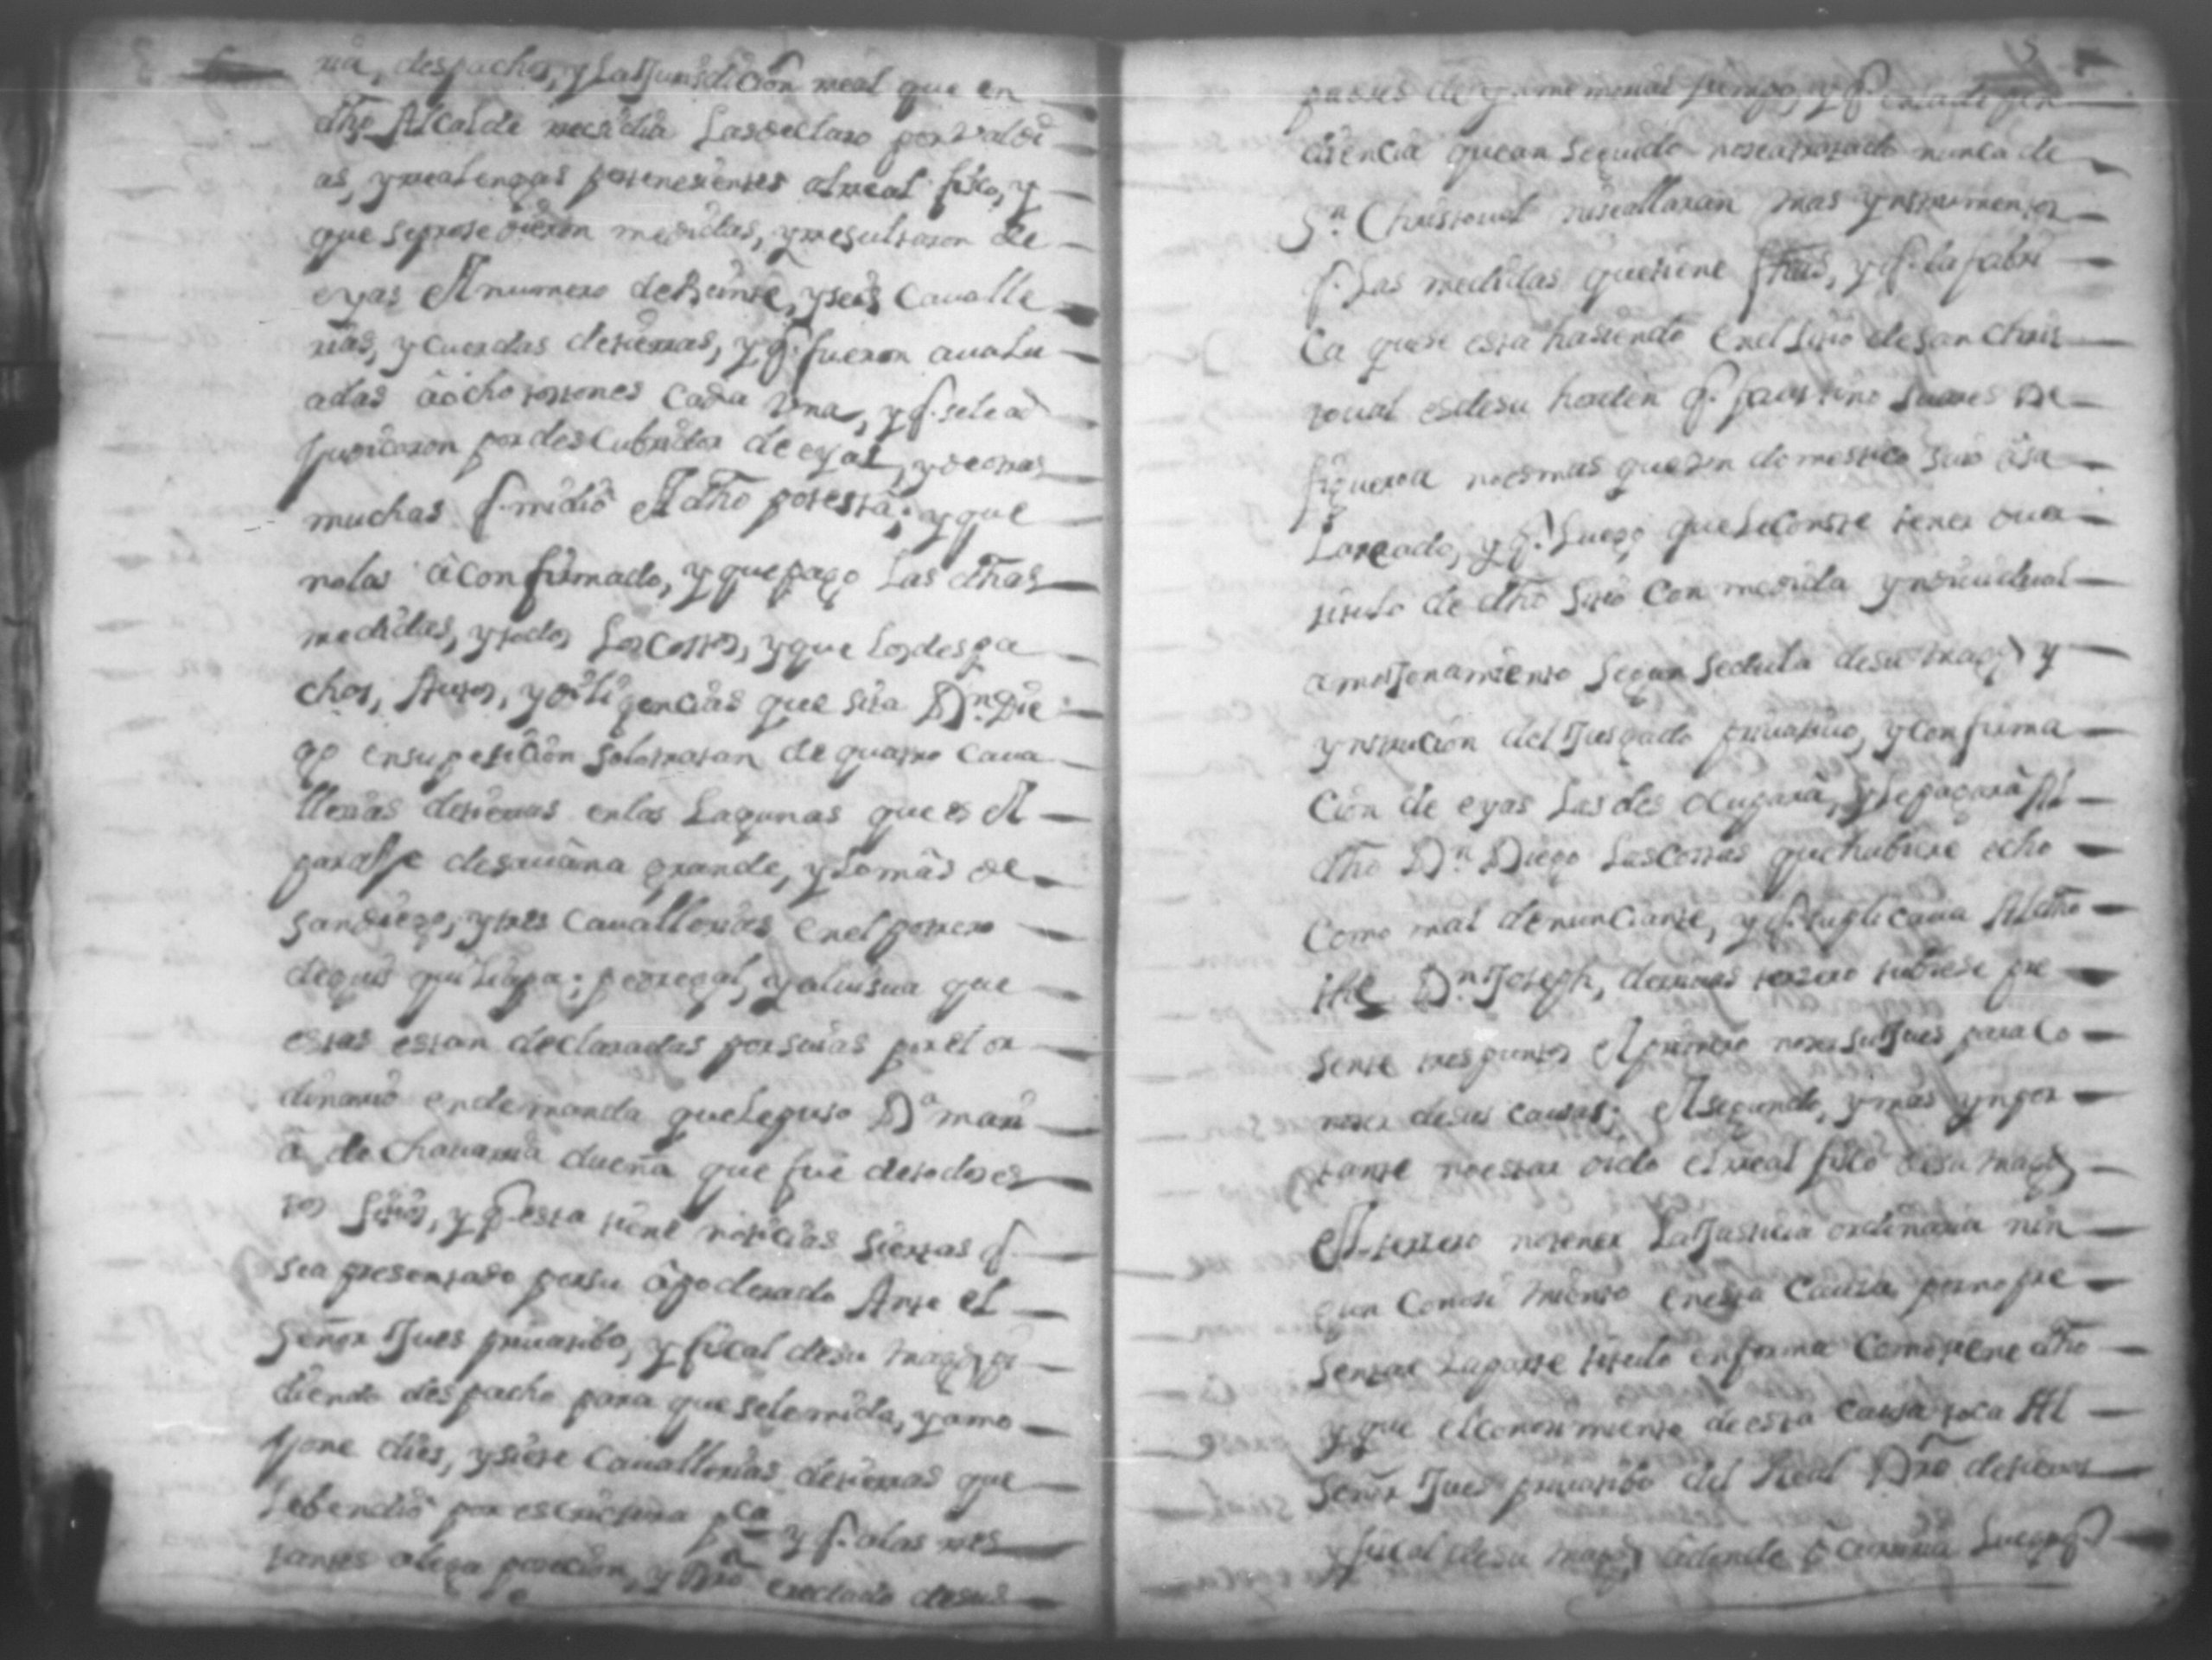 ria, despachos, y la Jurisdicion rreal que en
dho Alcalde rrecidia las declaro por valdi
as, y rrealengas pertenesientes al rreal fisco, y
que se prosedieron medidas, y rresultaron de
eyas el numero de beinte, y seis Cavalle
rias, y cuerdas de tierras, y q. fueron avalu
adas â ocho tostones cada Vna, y q. se le ad
Judicaron por descubridor de eyas, y de otras
muchas q. midiô el dho potestâ; y que
no las â confirmado, y que pago las dhas
medidas, y todos los costos, y que los despa
chos, Autos, y diligencias que sita Dn. Die
go en su petision solo tratan de quatro cava
llerias de tierras en las Lagunas que es el
paraJe de savâna grande, y lo mâs de
san diego, y tres Cavallerias en el potrero
de quisquiliapa; pedregal, y alvisua que
estas estan declaradas por suias por el or
dinario en demanda que le puso Da. mari
a de chavarria dueña que fue de todos es
tos sitios, y q. esta tiene notisias siertas q.
sea presentado por su âpoderado Ante el
Señor Jues privatibo, y fiscal de su magd. pi
diendo despacho para que se le mida, y amo
Jone dies, y siete Cavallerias de tierras que
le bendiô por escriptura pca. y q. a las rres
tantes alega posecion, y Dro. eredado de sus
padres de ynmemorial tiempo, y q. en la depen
diencia que an seguido no sea tratado nunca de
Sn. Christoval ni se allaran mas ynstrumentos
q. las medidas que tiene fhas, y q. la fabri
ca que se esta hasiendo en el sitio de san chris
toval es de su horden q. faustino suares de
figueroa no es mas que Vn domestico suio âsa
lareado, y q. luego que le conste tener ôtra
titulo de dho sitio con medida yndividual
amoJonamiento segun sedula de su magd. y
ynstrucion del Jusgado privativo, y confirma
cion de eyas las des ocuparâ, y le pagarâ Al
dho Dn. Diego las costas que hubiere echo
como mal denunciante, y q. suplicava Al dho
Dn. Joseph, de mas tersero tubiese pre
sente tres puntos el primero no ser su Jues para co
noser de sus causas; el segundo, y mas ynpor
tante no estar oido el rreal fisco de su magd.
el tersero no tener la Justicia ordinaria nin
gun conosimiento en esta causa, por no pre
sentar la parte titulo en forma como tiene dho
y que el conosimiento de esta causa toca Al
Señor Jues privatibo del Real Dro. de tierras
y fiscal de su magd. âdonde ôcurriria luego q.